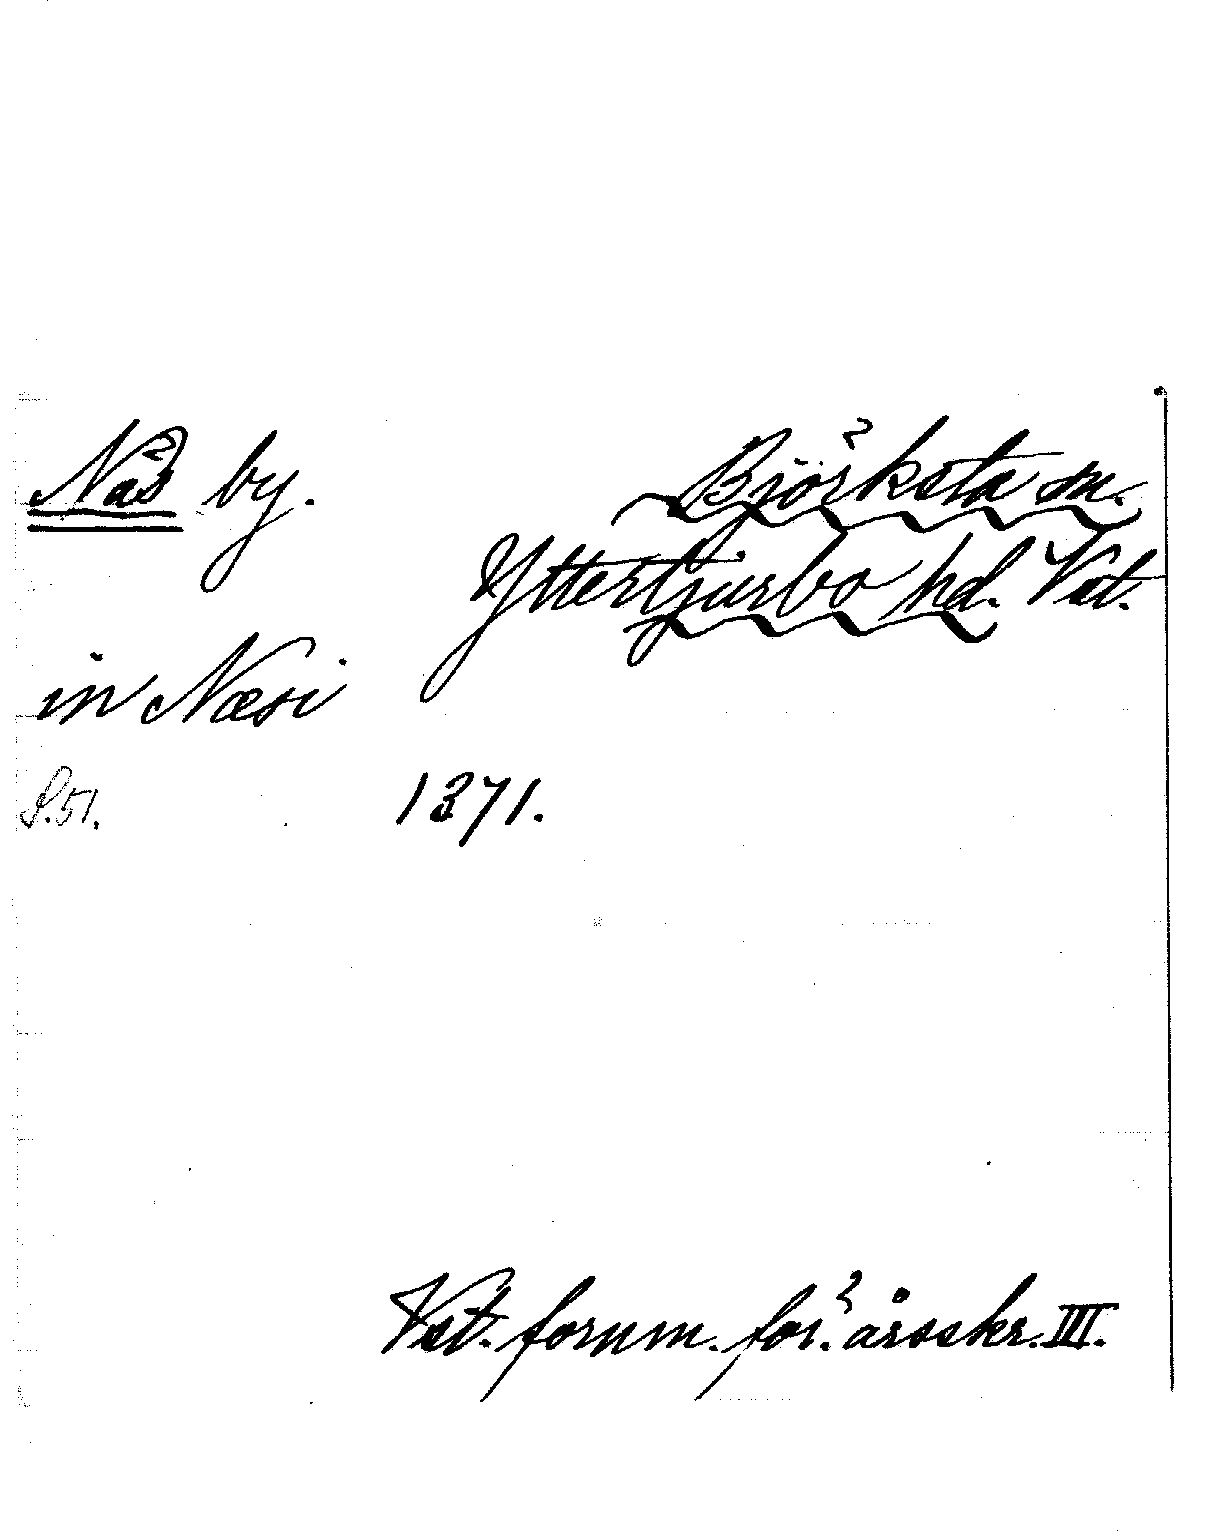 Näs by. Björksta sn.
Yttertjurbo hd. Vst.
in Næsi
S. 51. 1371.
Vst. fornm. för:s årsskr. III.